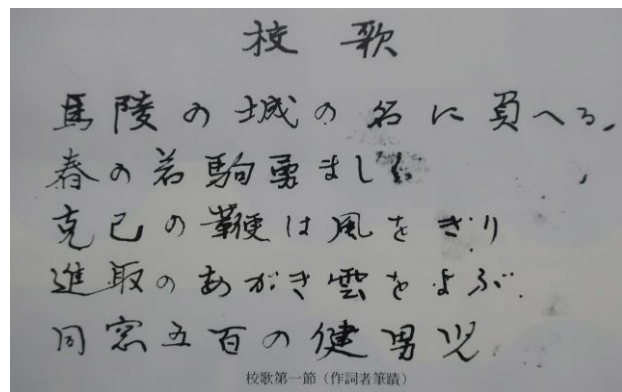 校歌
馬陵の城の名に負へる、
春の若駒勇ましく、
克己の鞭は風をきり
進取のあがき雲をよぶ。
同窓五百の健男児
校歌第一節（作詞者筆蹟）